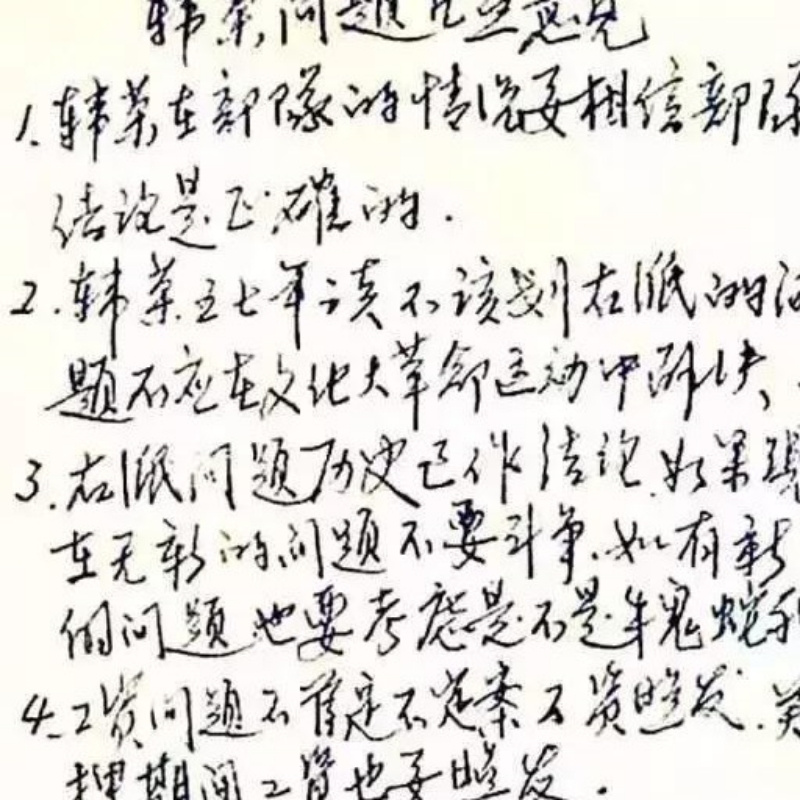 韩荣问题几点意见
1.韩荣在部隊的情况要相信部隊
结论是正確的.
2.韩荣五七年该不该划右派的问
题不应在文化大革命运动中解决、
3.右派问题历史已作结论.如果现
在无新的问题不要斗争.如有新
的问题也要考虑是不是牛鬼蛇神
4.工资问题不定案工资照发.
期间工资也要照发.